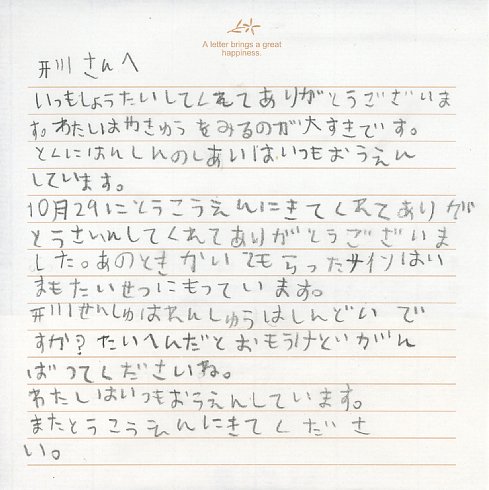 A letter brings a great
happiness.
井川さんへ
いつもしょうたいしてくれてありがとうございま
す。わたしはやきゅうをみるのが大すきです。
とくにはんしんのしあいは、いつもおうえん
しています。
10月29にとうこうえんにきてくれてありが
とうさいんしてくれてありがとうございま
した。あのときかいてもらったサインはい
まもたいせつにもっています。
井川せんしゅはれんしゅうはしんどいで
すか?たいへんだとおもうけどがん
ばってくださいね。
わたしはいつもおうえんしています。
またとうこうえんにきてくださ
い。